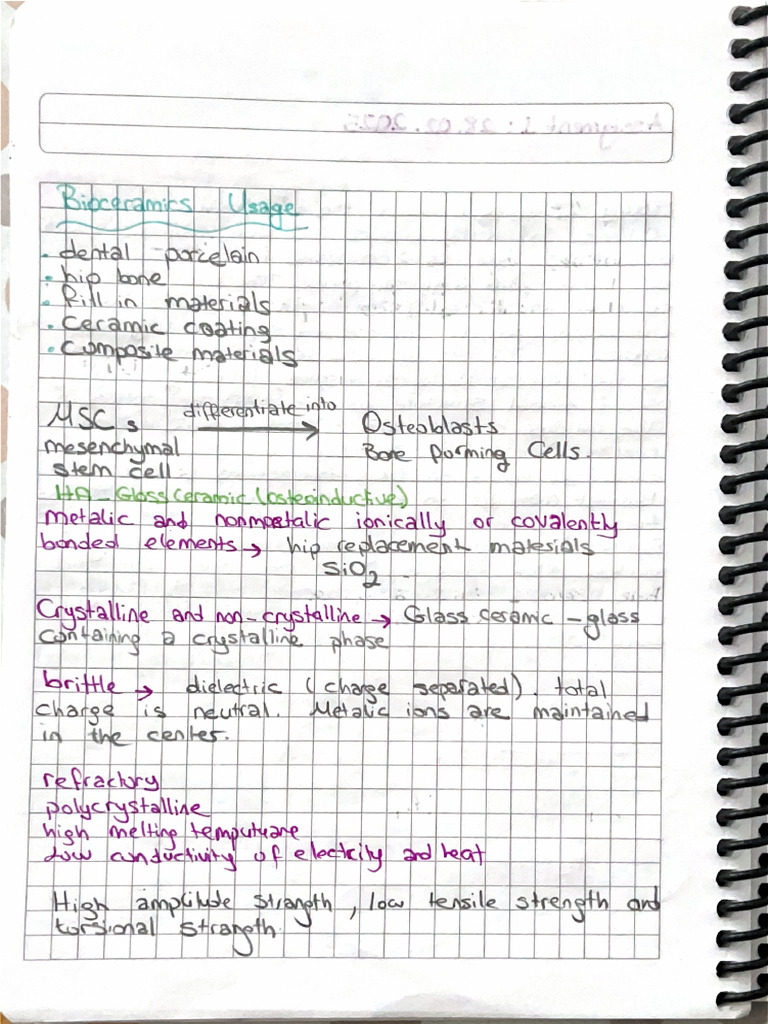 Bioceramics Usage
. dental porcelain
. hip bone
. Fill in materials
. Ceramic coating
. Composite materials
MSCs differentiate into Osteoblasts
mesenchymal Bone Forming Cells.
stem cell
HA - Glass ceramic (osteoinductive)
metalic and nonmetalic ionically or covalently
bonded elements → hip replacement materials
SiO2
Crystalline and non-crystalline → Glass ceramic - glass
containing a crystalline phase
brittle → dielectric (charge separated). total
charge is neutral. Metalic ions are maintained
in the center.
refractory
polycrystalline
high melting temputuare
Low conductivity of electrcity and heat
High amplitude strangth, low tensile strength and
torsional strangth.